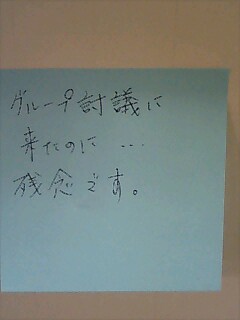 グループ討議に
来たのに…
残念です。